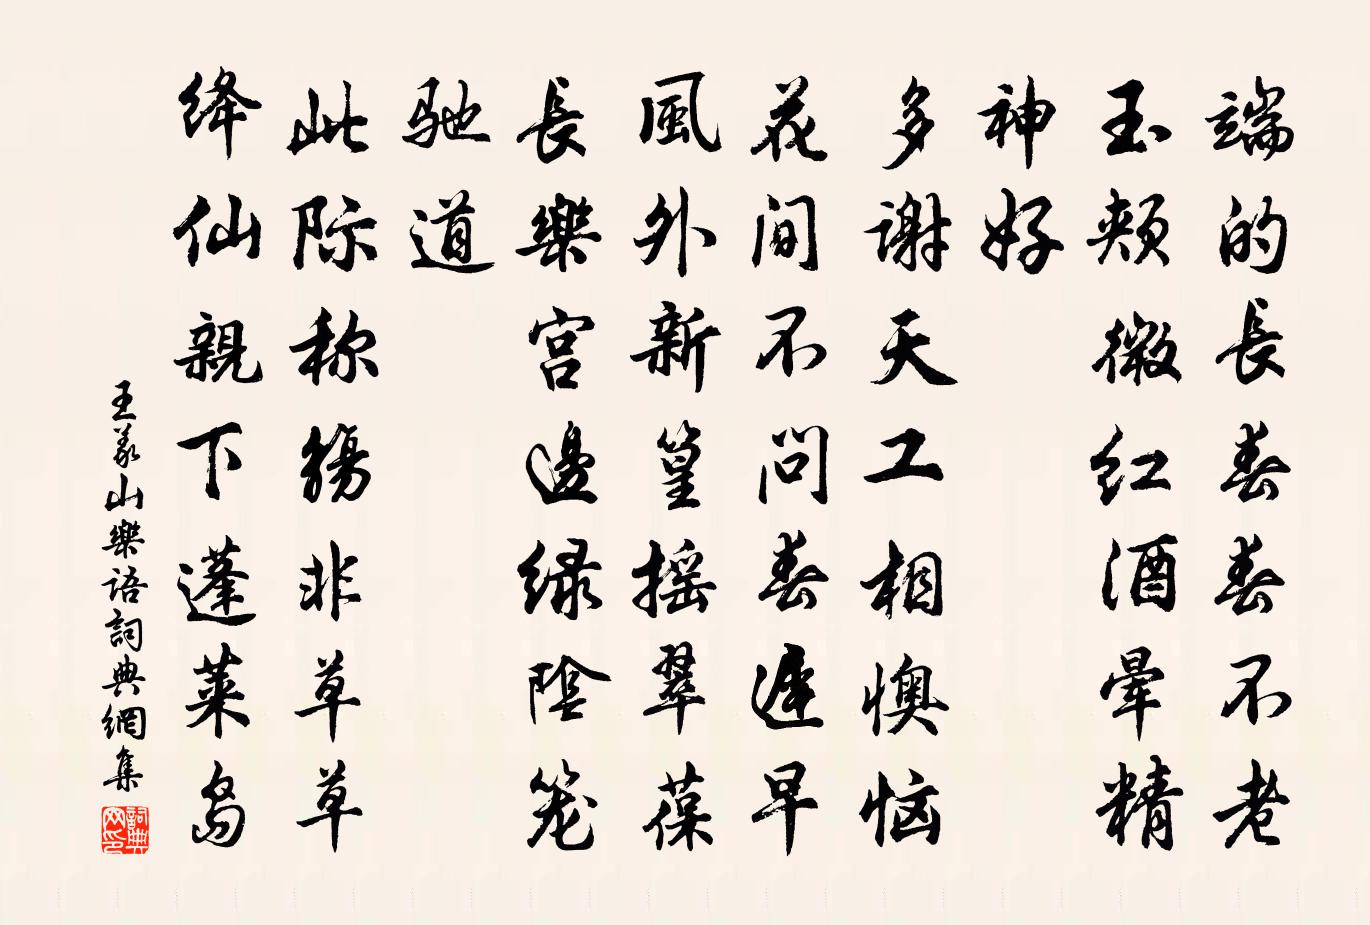 端的長春春不老
玉颊微红酒暈精
神好
多谢天工相懊恼
花间不问春遲早
風外新篁摇翠葆
長樂宫邊绿陰笼
驰道
此际称觞非草草
绛仙親下蓬莱岛
王义山樂语詞典網集
詞典网印